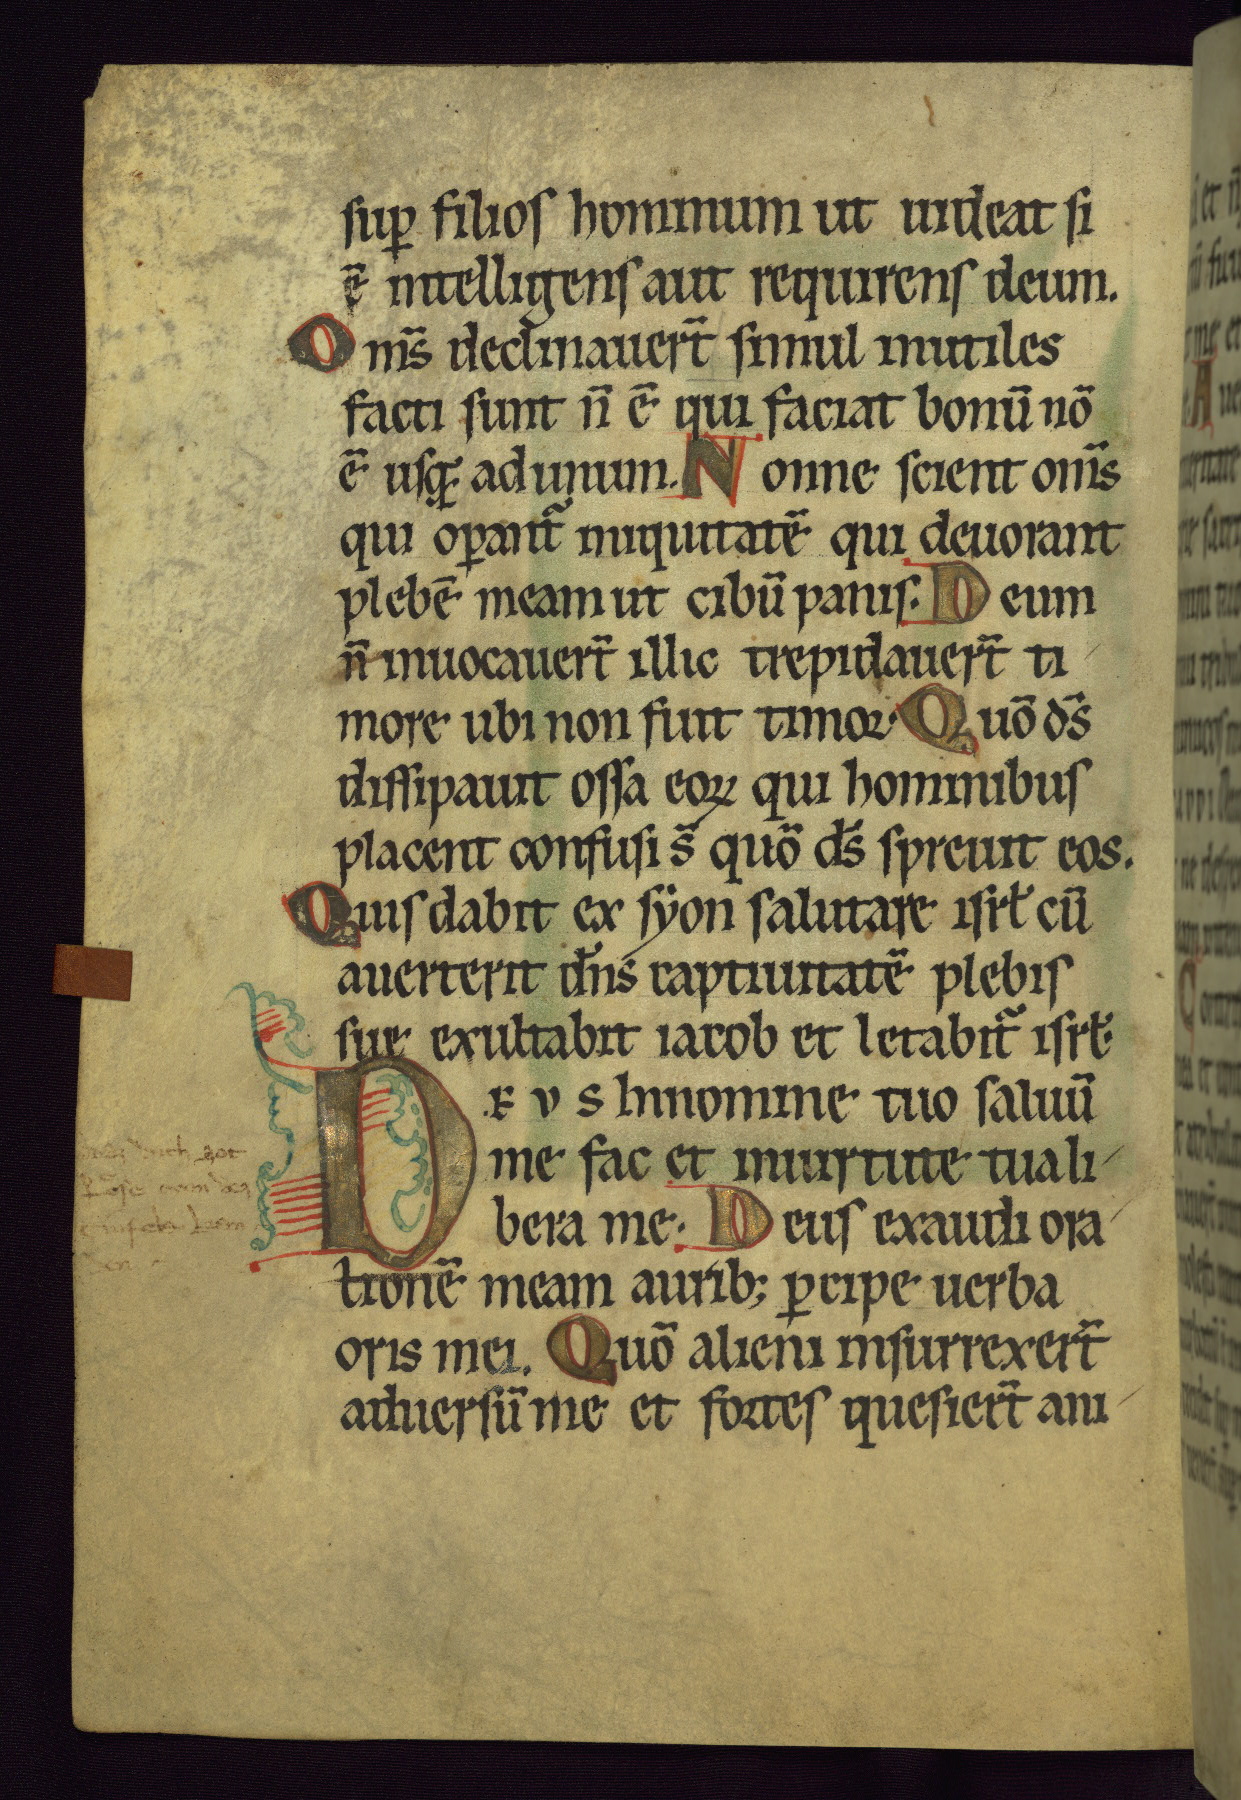 sup filios hominum ut uideat si
ē intelligens aut requirens deum.
Om̄s declinauer̄t simul inutiles
facti sunt n̄ ē qui faciat bonū nō
ē usq; ad unum. Nonne scient om̄s
qui opant̄ iniquitatē qui deuorant
plebē meam ut cibū panis. Deum
n̄ inuocauer̄t illic trepidauer̄t ti
more ubi non fuit timor. Quō d̄s
dissipauit ossa eoꝝ qui hominibus
placent confusi s̄ quō d̄s spreuit eos.
Quis dabit ex syon salutare isrł cū
auerterit dn̄s captiuitatē plebis
sue exultabit iacob et letabit̄ isrł.
DEUS In nomine tuo saluū
me fac et in uirtute tua li
bera me. Deus exaudi ora
tionē meam aurib; ꝑcipe uerba
oris mei. Quō alieni insurrexer̄t
aduersū me et fortes quesier̄t ani